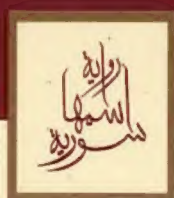 رواية
اسمها
سورية